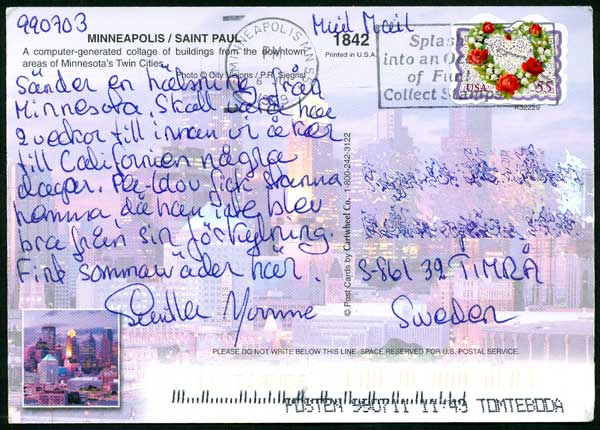 990703
MINNEAPOLIS / SAINT PAUL
A computer-generated collage of buildings from the downtown
areas of Minnesota's Twin Cities.
Photo © City Visions / P.R. Siegrist
1842
Printed in U.S.A.
MINNEAPOLIS MN
PM
Splash
into an Oc
of Fun!
Collect Stamps
USA 55
K32229
Sänder en hälsning från
Minnesota. Skall vara här
2 veckor till innan vi åker
till Californien några
dagar. Pä-Olov fick stanna
hemma, då han inte blev
bra från sin förkylning.
Fint sommarväder här.
Yvonne
© Post Cards by Cartwheel Co. 1-800-242-3122
S-861 32 TIMRÅ
Sweden
PLEASE DO NOT WRITE BELOW THIS LINE. SPACE RESERVED FOR U.S. POSTAL SERVICE.
POSTEN 990711 11:43 TOMTEBODA